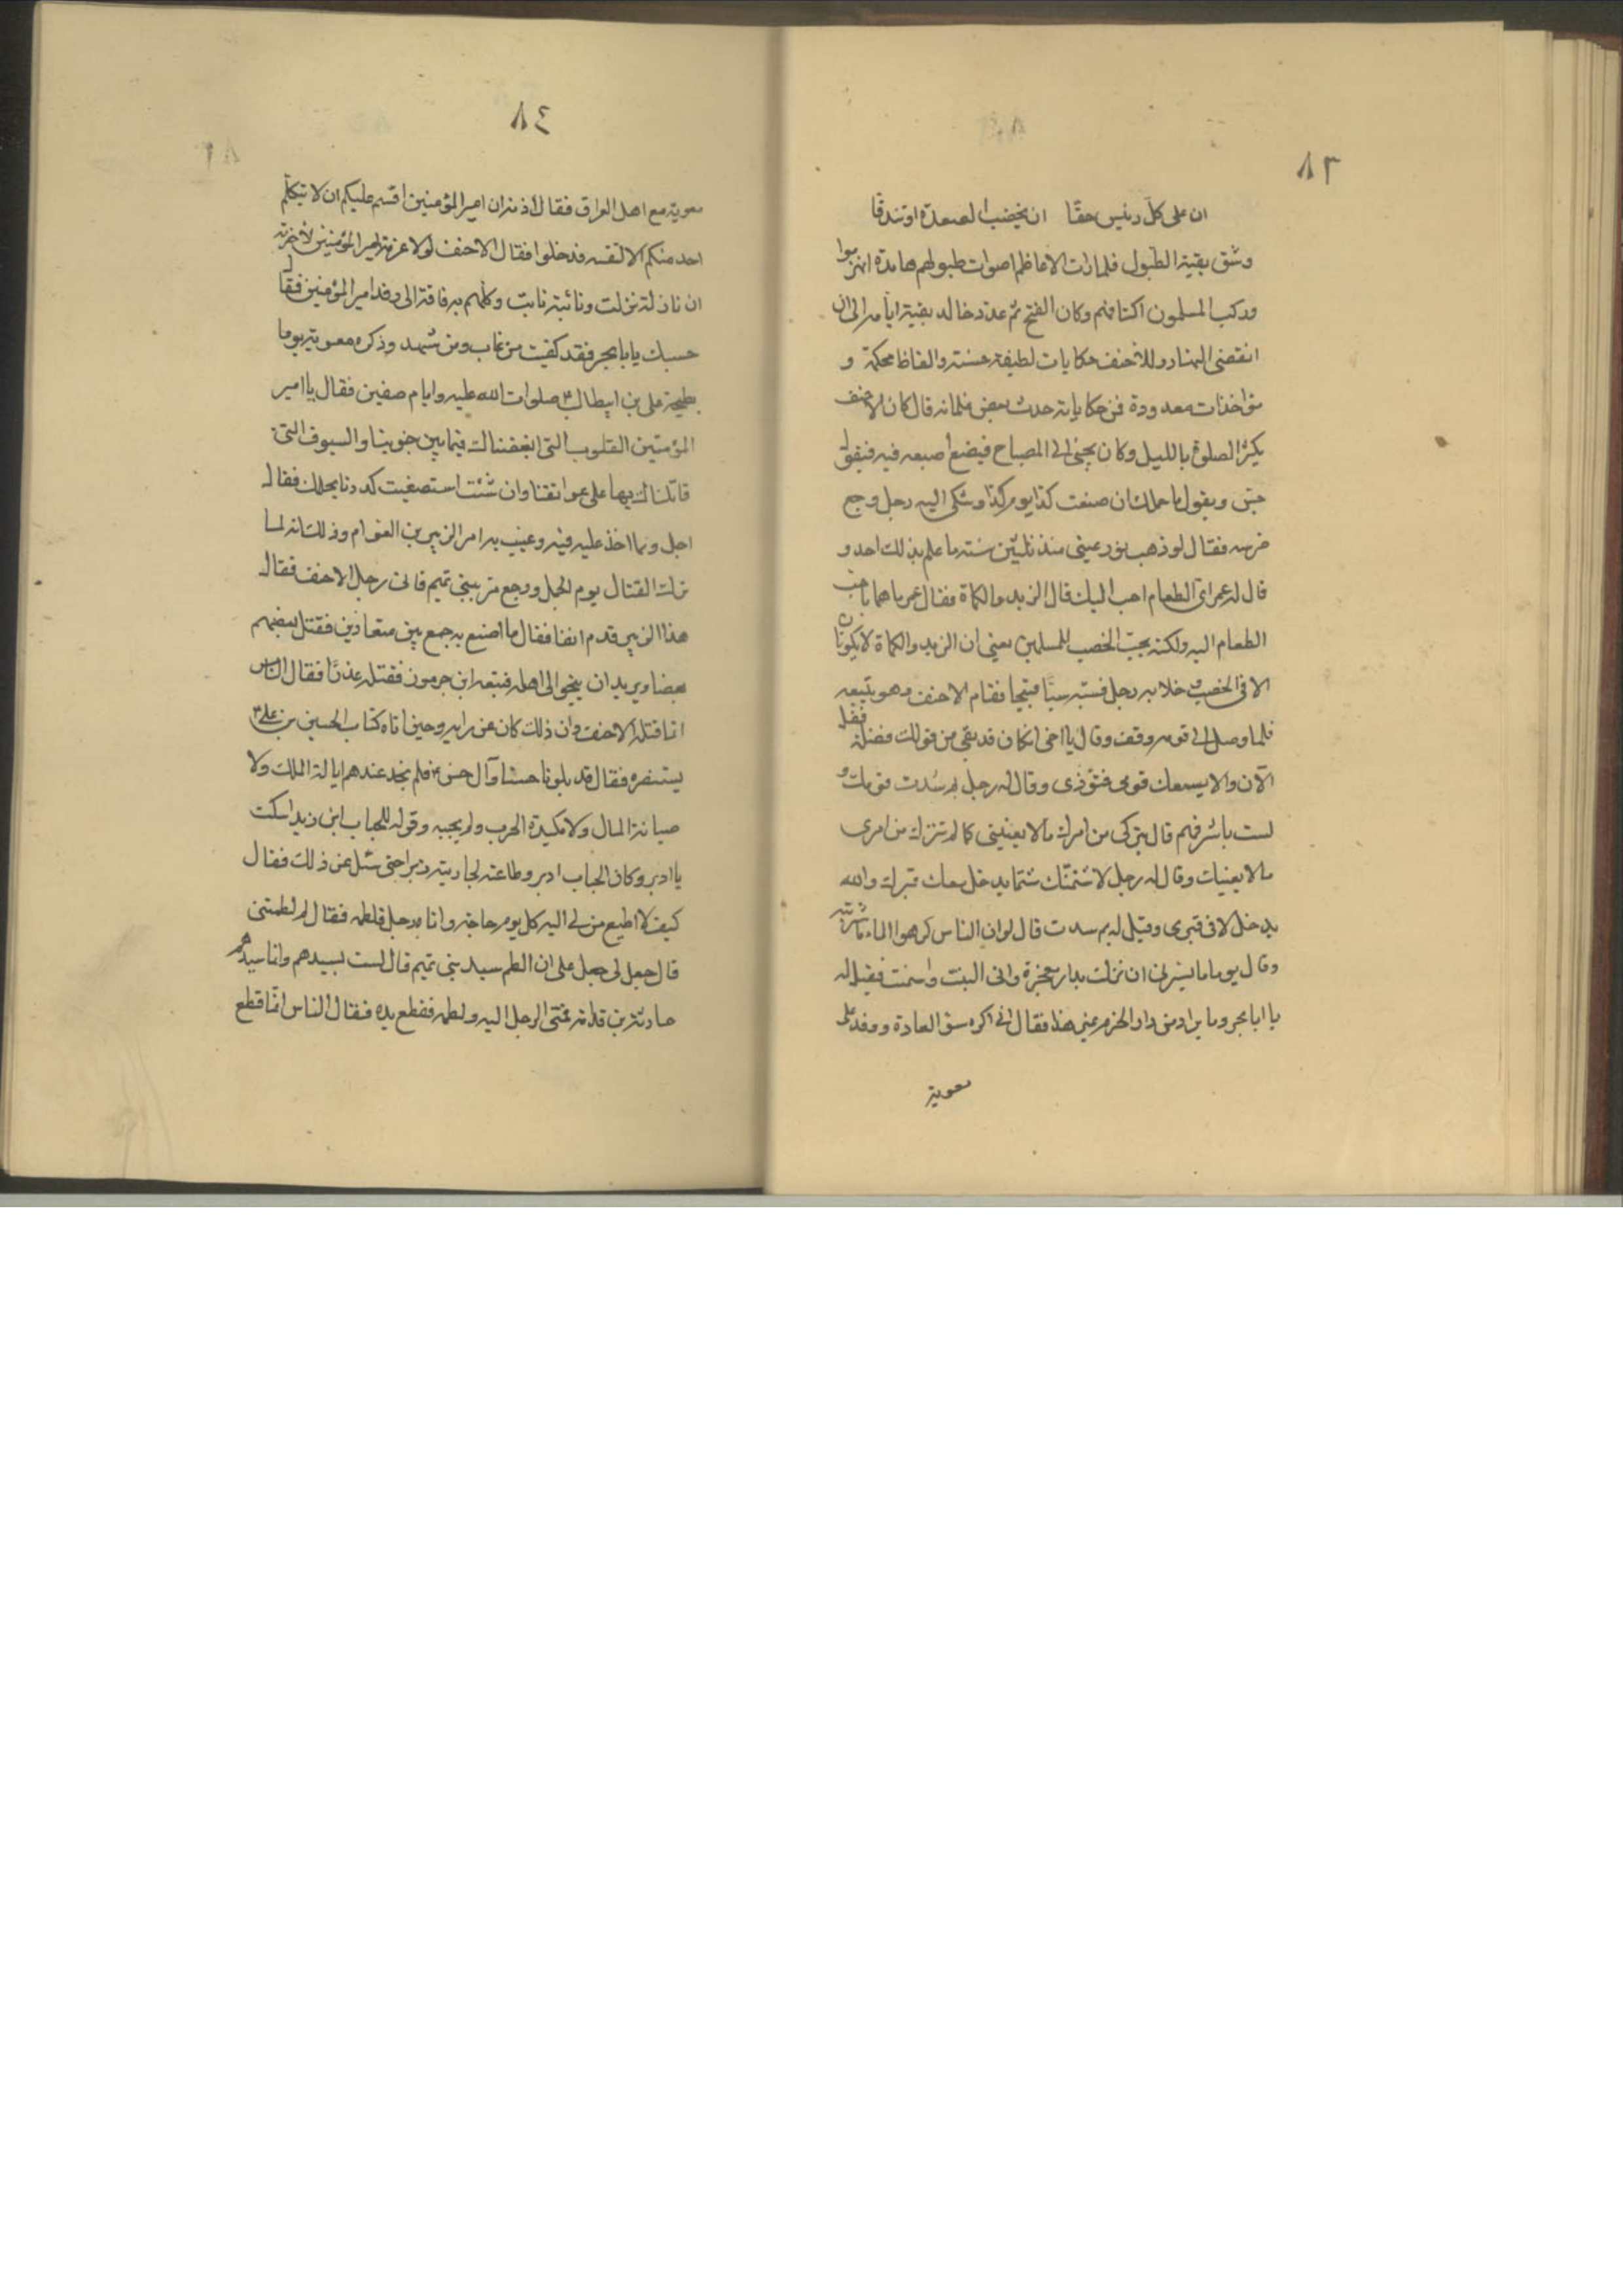 ٨٣
ان على كل رئيس حقا ان يخضب الصعدة او تندقا
وشق بقية الطبول فلما رات الاعاظم اصوات طبولهم هامدة انهزموا
وركب المسلمون اكتافهم وكان الفتح ثم عدد خالد بقية ايامه الى ان
انقضى النهار وللاحنف حكايات لطيفة حسنة والفاظ محكمة و
مواخذات معدودة فمن حكاياته حدث بعض غلمانه قال كان الاحنف
يكثر الصلوة بالليل وكان يجئ الى المصباح فيضع اصبعه فيه فيقول
حس ويقول ما حملك ان صنعت كذا يوم كذا وشكى اليه رجل وجع
ضرسه فقال لو ذهب نور عينى منذ ثلثين سنة ما علم بذلك احد و
قال له عمر اى الطعام احب اليك قال الزبد والكماة فقال عمر ما هما باحب
الطعام اليه ولكنه يحب الخصب للمسلمين يعنى ان الزبد والكماة لا يكونان
الا فى الخصب و خلا به رجل فسبه سبا قبيحا فقام الاحنف وهو يتبعه
فلما وصل الى قومه وقف وقال يا اخى ان كان قد بقى من قولك فضلة فقل
الآن والا يسمعك قومى فتوذى وقال له رجل بم سدت قومك و
لست باشرفهم قال بتركى من امرك ما لا يعنينى كما لم تترك من امرى
ما لا يعنيك وقال له رجل لاشتمنك شتما يدخل معك قبرك والله
يدخل لا فى قبرى وقيل له بم سدت قال لو ان الناس كرهوا الماء ما شربته
وقال يوما ما يسرنى ان نزلت بدار معجزة وانى البنت واسمنت فقيل له
يا ابا بحر وما يراد من دار الحزم غير هذا فقال انى اكره سوء العادة ووفد على
معوية
٨٤
معوية مع اهل العراق فقال آذنه ان امير المؤمنين اقسم عليكم ان لا يتكلم
احد منكم الا لنفسه فدخلوا فقال الاحنف لولا عزمة امير المؤمنين لاخبرته
ان نازلة نزلت ونائبة نابت وكلهم به فاقة الى رفد امير المؤمنين فقال
حسبك يا با بحر فقد كفيت من غاب ومن شهد وذكره معوية يوما
بطيحة على بن ابيطالب صلوات الله عليه وايام صفين فقال يا امير
المؤمنين القلوب التى ابغضناك فيما بين جنوبنا والسيوف التى
قاتلناك بها على عواتقنا وان شئت استصفيت كدرنا بحلمك فقال
اجل ومما اخذ عليه فيه وعيب به امر الزبير بن العوام وذلك انه لما
ترك القتال يوم الجمل ورجع مر ببنى تميم فاتى رجل الاحنف فقال
هذا الزبير قد مر انفا فقال ما اصنع به جمع بين متعاديين فقتل بعضهم
بعضا ويريد ان ينجو الى اهله فتبعه ابن جرموز فقتله غدرا فقال الناس
انما قتله الاحنف وان ذلك كان عن رايه وحين اتاه كتاب الحسين بن على
يستنصره فقال قد بلونا حسنا وآل حسن فلم نجد عندهم ايالة الملك ولا
صيانة المال ولا مكيدة الحرب ولم يجبه وقوله للحباب ابن زيد اسكت
يا ادبر وكان الحباب ادبر وطاعته لجاريته زبرا حتى سئل عن ذلك فقال
كيف لا اطيع من لى اليه كل يوم حاجة واتاه رجل فلطمه فقال لم لطمتنى
قال جعل لى جعل على ان الطم سيد بنى تميم قال لست بسيدهم وانما سيدهم
حارثة بن قدامة فمضى الرجل اليه ولطمه فقطع يده فقال الناس انما قطع